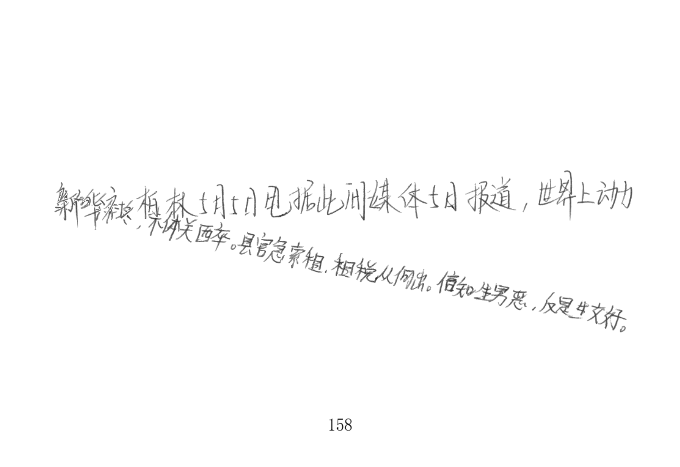 新华社柏林5月5日电据此间媒体5日报道，世界上动力
冬，未休关西卒。县官急索租，租税从何出。信知生男恶，反是生女好。
158